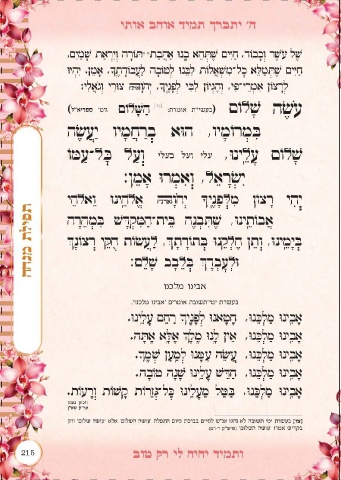 ה' יתברך תמיד אוהב אותי
שֶׁל עֹשֶׁר וְכָבוֹד, חַיִּים שֶׁתְּהֵא בָנוּ אַהֲבַת־תּוֹרָה וְיִרְאַת שָׁמַיִם,
חַיִּים שֶׁתְּמַלֵּא כָּל־מִשְׁאֲלוֹת לִבֵּנוּ לְטוֹבָה לַעֲבוֹדָתֶךָ, אָמֵן. יִהְיוּ
לְרָצוֹן אִמְרֵי־פִי, וְהֶגְיוֹן לִבִּי לְפָנֶיךָ, יְהוָה צוּרִי וְגֹאֲלִי:
עֹשֶׂה שָׁלוֹם (בעשי״ת אומרת: הַשָּׁלוֹם גימ' ספריא״ל)
בִּמְרוֹמָיו, הוּא בְרַחֲמָיו יַעֲשֶׂה
שָׁלוֹם עָלֵינוּ, עלי ועל בעלי וְעַל כָּל־עַמּוֹ
יִשְׂרָאֵל, וְאִמְרוּ אָמֵן:
יְהִי רָצוֹן מִלְּפָנֶיךָ יְהוָה אֱלֹהֵינוּ וֵאלֹהֵי
אֲבוֹתֵינוּ, שֶׁתִּבְנֶה בֵּית־הַמִּקְדָּשׁ בִּמְהֵרָה
בְיָמֵינוּ, וְתֵן חֶלְקֵנוּ בְתוֹרָתֶךָ, לַעֲשׂוֹת חֻקֵּי רְצוֹנֶךָ
וּלְעָבְדֶךָ בְּלֵבָב שָׁלֵם:
אבינו מלכנו
בעשרת ימי־תשובה אומרים 'אבינו מלכנו':
אָבִינוּ מַלְכֵּנוּ, חָטָאנוּ לְפָנֶיךָ רַחֵם עָלֵינוּ.
אָבִינוּ מַלְכֵּנוּ, אֵין לָנוּ מֶלֶךְ אֶלָּא אָתָּה.
אָבִינוּ מַלְכֵּנוּ, עֲשֵׂה עִמָּנוּ לְמַעַן שְׁמֶךָ.
אָבִינוּ מַלְכֵּנוּ, חַדֵּשׁ עָלֵינוּ שָׁנָה טוֹבָה.
אָבִינוּ מַלְכֵּנוּ, בַּטֵּל מֵעָלֵינוּ כָּל־גְּזֵרוֹת קָשׁוֹת וְרָעוֹת.
תפילת מנחה
215
ותמיד יהיה לי רק טוב